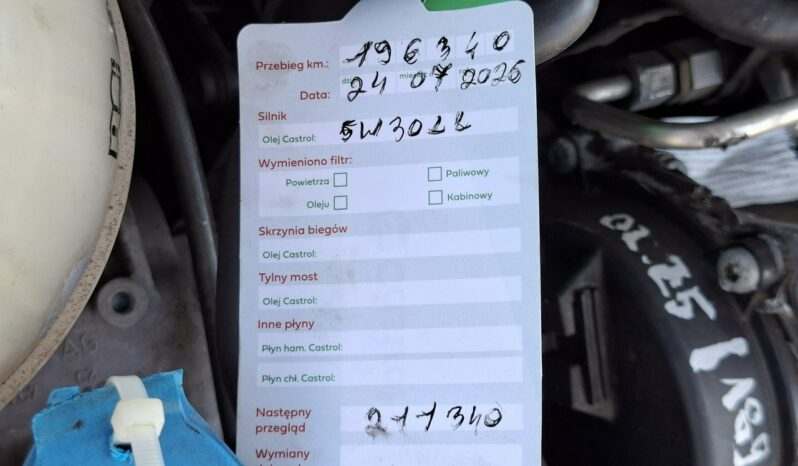 Przebieg km.: 196 340
Data: 24 07 2026
Silnik
Olej Castrol: 5W30LL
Wymieniono filtr:
Powietrza
Paliwowy
Oleju
Kabinowy
Skrzynia biegów
Olej Castrol:
Tylny most
Olej Castrol:
Inne płyny
Płyn ham. Castrol:
Płyn chł. Castrol:
Następny przegląd 211 340
Wymiany